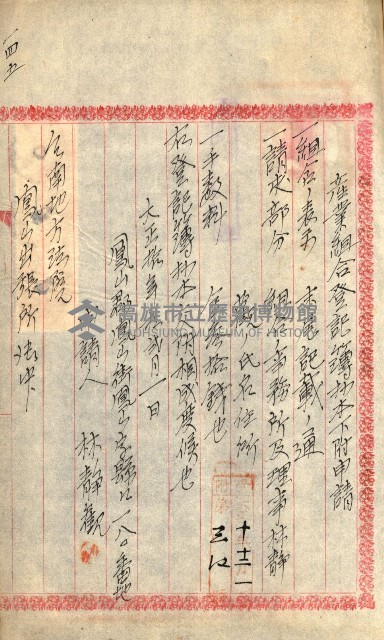 産業組合登記簿抄本下附申請
一組合ノ表示 末尾記載ノ通
一請求部分 組合ノ事務所及理事林靜
觀ノ氏名住所
一手数料 金 拾錢也
右登記簿抄本下附相成度候也
大正拾 年 弐月一日
鳳山郡鳳山街鳳山字縣口一八〇番地
申請人 林靜觀
台南地方法院
鳳山出張所 御中
十 十三 一
一四五
高雄市立歷史博物館
KAOHSIUNG MUSEUM OF HISTORY